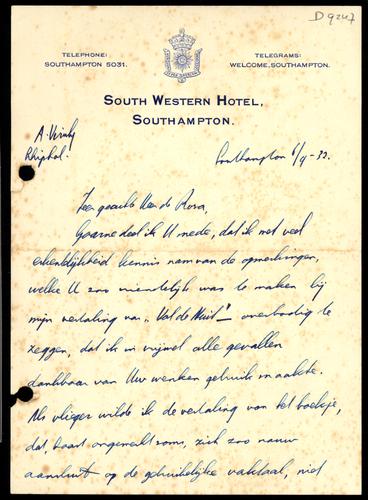 D 9247
TELEPHONE: SOUTHAMPTON 5031.
TELEGRAMS: WELCOME, SOUTHAMPTON.
SOUTH WESTERN HOTEL,
SOUTHAMPTON.
A. Viruly
Schiphol.
Southampton 6/9-33.
Zeer geachte Heer de Roos,
Gaarne deel ik U mede, dat ik met veel
erkentelijkheid kennis nam van de opmerkingen,
welke U zoo vriendelijk was te maken bij
mijn vertaling van "Vol de Nuit" – overbodig te
zeggen, dat ik in vrijwel alle gevallen
dankbaar van Uw wenken gebruik maakte.
Als vlieger wilde ik de vertaling van het boekje,
dat, soms, zich zoo nauw
aansluit op de gebruikelijke vaktaal, niet